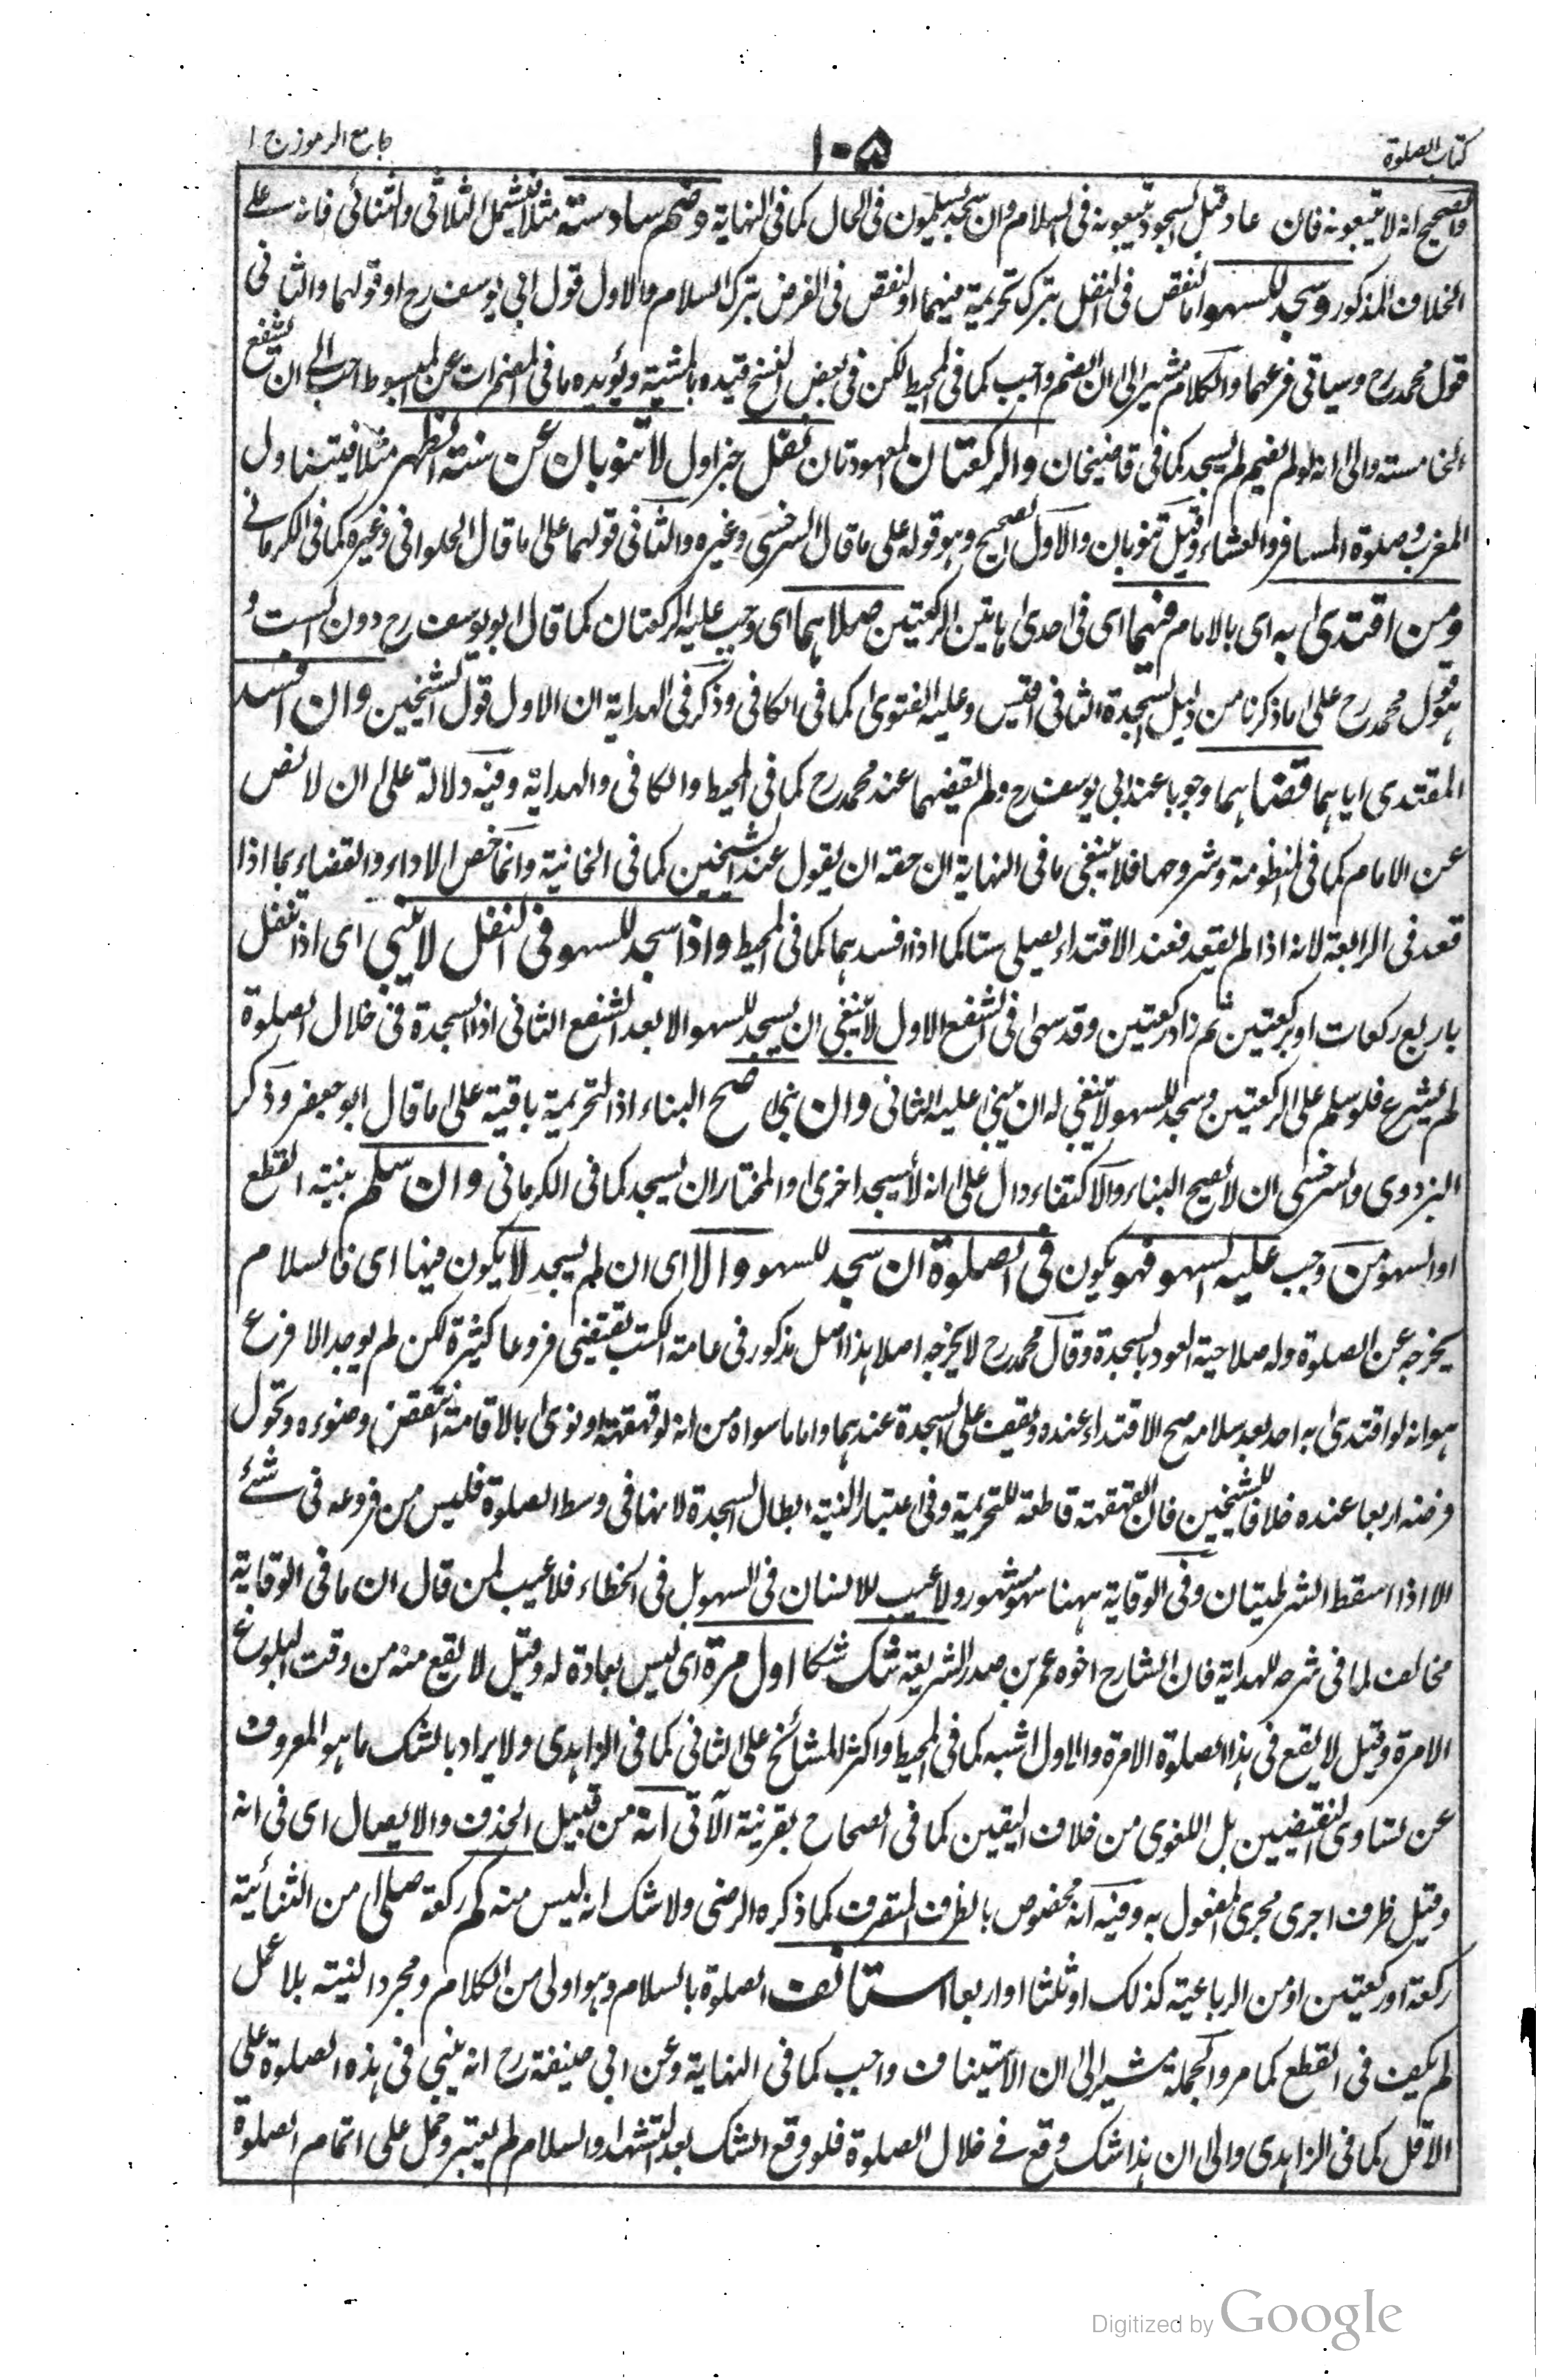 كتاب الصلوة
١٠٥
جامع الرموز ج ١
والصحيح انه لا يتبعونه فان عاد قبل السجود يتبعونه فى السلام وان سجد يسلمون فى الحال كما فى النهاية وضم سادسته مثلا فيشمل الثلاثى والثنائى فانه على
الخلاف المذكور وسجد للسهو اما لنقص فى النفل بترك تحريمة فيهما او لنقص فى الفرض بترك السلام والاول قول ابى يوسف رح او قولهما والثانى
قول محمد رح وسياتى فرعهما والكلام مشير الى ان الضم واجب كما فى المحيط لكن فى بعض النسخ قيده بالمشية ويؤيده ما فى المضمرات عن المبسوط احب الى ان يشفع
الخامسته والى انه لو لم يضم لم يسجد كما فى قاضيخان والركعتان المعهودتان نفل خبر اول لا تنوبان عن سنته الظهر مثلا فيتناول
المغرب وصلوة المسافر والعشاء وقيل تنوبان والاول الصحيح وهو قوله على ما قال السرخسى وغيره والثانى قولهما على ما قال الحلوانى وغيره كما فى الكرمانى
ومن اقتدى به اى بالامام فيهما اى فى احدى هاتين الركعتين صلاهما اى وجب عليه الركعتان كما قال ابو يوسف رح دون الست و
هقول محمد رح على ما ذكرنا من دليل السجدة الثانى اقيس وعليه الفتوى كما فى الكافى وذكر فى الهداية ان الاول قول الشيخين وان افسد
المقتدى اياهما قضاهما وجوبا عند ابى يوسف رح ولم يقضهما عند محمد رح كما فى المحيط والكافى والهداية وفيه دلالة على ان لا نص
عن الامام كما فى المنظومة وشروحها فلا ينبغى ما فى النهاية ان حقه ان يقول عند الشيخين كما فى الخانية وانما خص الاداء والقضاء بما اذا
قعد فى الرابعة لانه اذا لم يقعد فعند الاقتداء يصلى ستا كما اذا افسدهما كما فى المحيط واذا سجد للسهو فى النفل لا يبنى اى اذا تنفل
باربع ركعات او بركعتين ثم زاد ركعتين وقد سهى فى الشفع الاول لا ينبغى ان يسجد للسهو الا بعد الشفع الثانى اذ السجدة فى خلال الصلوة
لم يشرع فلو سلم على الركعتين وسجد للسهو لا ينبغى له ان يبنى عليه الثانى وان بنى صح البناء اذ التحريمة باقية على ما قال ابو جعفر وذكر
البزدوى والسرخسى ان لا يصح البناء والاكتفاء دال على انه لا يسجد اخرى والمختار ان يسجد كما فى الكرمانى وان سلم بنيته القطع
او السهو من وجب عليه السهو فهو يكون فى الصلوة ان سجد للسهو والا اى ان لم يسجد لا يكون فيها اى فالسلام
يخرجه عن الصلوة وله صلاحية العود بالسجدة وقال محمد رح لا يخرجه اصلا هذا اصل مذكور فى عامة الكتب يقتضى فروعا كثيرة لكن لم يوجد الا فرع
هو انه لو اقتدى به احد بعد سلامه صح الاقتداء عنده ويقف على السجدة عندهما واما ما سواه من انه لو قهقهة او نوى بالاقامة انتقض وضوءه وتحول
فرضه اربعا عنده خلافا للشيخين فان القهقهة قاطعة للتحريمة وفى اعتبار النية ابطال السجدة لانها فى وسط الصلوة فليس من فروعه فى شئ
الا اذا اسقط الشرطيتان وفى الوقاية ههنا سهو مشهور ولا عيب للانسان فى السهو بل فى الخطاء فلا عيب لمن قال ان ما فى الوقاية
مخالف لما فى شرحه للهداية فان الشارح اخوه عمر بن صدر الشريعة شك شكا اول مرة اى ليس بعادة له وقيل لا يقع منه من وقت البلوغ
الا مرة وقيل لا يقع فى هذا الصلوة الا مرة والاول اشبه كما فى المحيط واكثر المشائخ على الثانى كما فى الزاهدى ولا يراد بالشك ما هو المعروف
عن تساوى النقيضين بل اللغوى من خلاف اليقين كما فى الصحاح بقرينة الآتى انه من قبيل الحذف والايصال اى فى انه
وقيل ظرف اجرى مجرى المفعول به وفيه انه مخصوص بالظرف المتصرف كما ذكره الرضى ولا شك انه ليس منه كم ركعة صلى من الثنائية
ركعة او ركعتين او من الرباعية كذلك او ثلثا او اربعا استانف الصلوة بالسلام وهو اولى من الكلام ومجرد النيته بلا عمل
لم يكف فى القطع كما مر والجملة مشير الى ان الاستيناف واجب كما فى النهاية وعن ابى حنيفة رح انه يبنى فى هذه الصلوة على
الاقل كما فى الزاهدى والى ان هذا شك وقع فى خلال الصلوة فلو وقع الشك بعد التشهد او السلام لم يعتبر وحمل على اتمام الصلوة
Digitized by Google